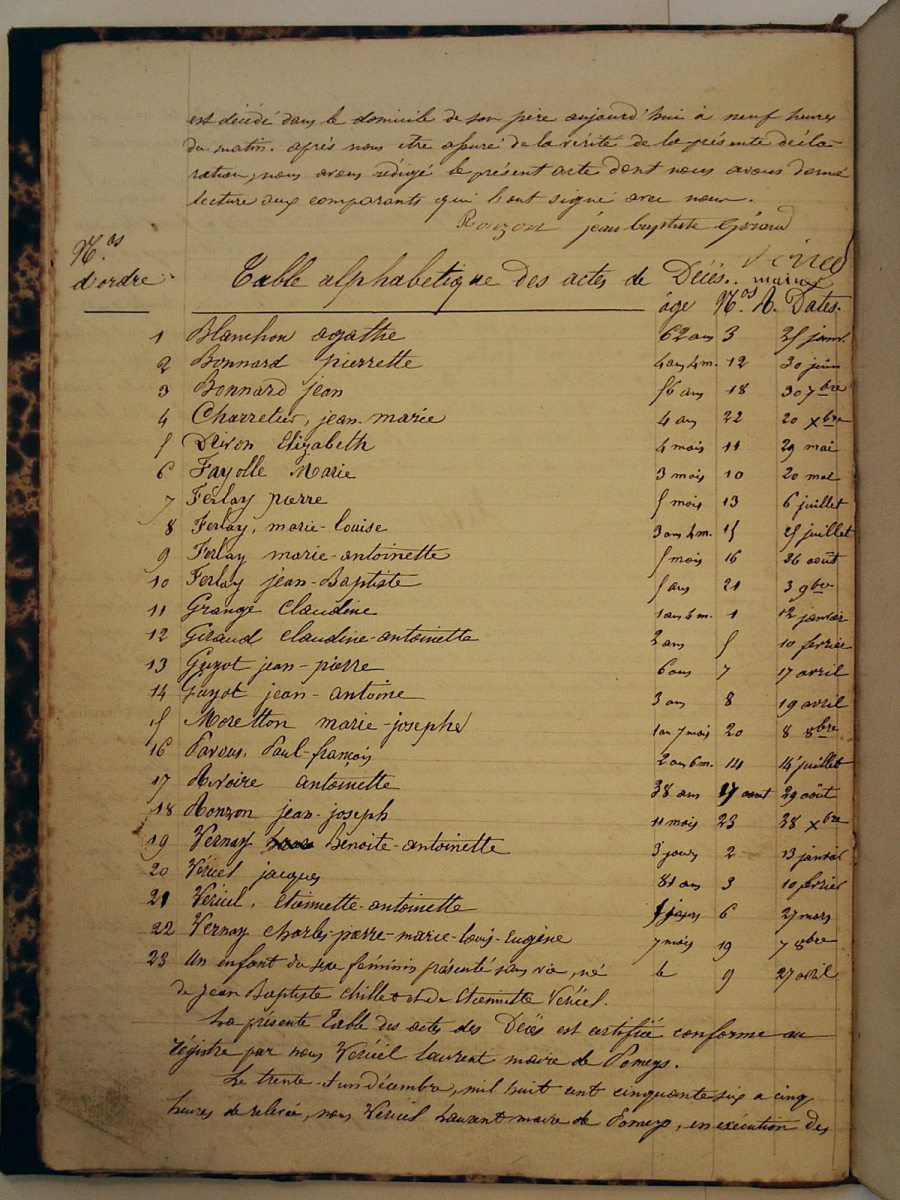 est décédé dans le domicile de son père aujourd'hui à neuf heures
du matin. après nous être assuré de la vérité de la présente décla-
ration, nous avons rédigé le présent acte dont nous avons donné
lecture aux comparants qui l'ont signé avec nous.
Ronzon jean baptiste Géraud
Vériel
maire
N.os
d'ordre.
Table alphabetique des actes de Décès.
âge N.os A. Dates.
1 Blanchon agathe 62 ans 3 25 janv.
2 Bonnard pierrette 4 ans 4 m. 12 30 juin
3 Bonnard jean 56 ans 18 30 7bre
4 Charretier, jean-marie 4 ans 22 20 xbre
5 Elizabeth 4 mois 11 29 mai
6 Fayolle Marie 3 mois 10 20 mai
7 Férlay pierre 5 mois 13 6 juillet
8 Ferlay, marie-louise 3 ans 4 m. 15 25 juillet
9 Ferlay marie-antoinette 5 mois 16 26 août
10 Ferlay jean-Baptiste 5 ans 21 3 9bre
11 Grange Claudine 1 an 4 m. 1 12 janvier
12 Giraud Claudine-antoinette 2 ans 5 10 fevrier
13 Guyot jean-pierre 6 ans 7 17 avril
14 Guyot jean-antoine 3 ans 8 19 avril
15 Moretton marie-josephe 1 an 7 mois 20 8 8bre
16 Paul-françois 2 ans 6 m. 14 14 juillet
17 Rivoire antoinette 38 ans 17 aout 29 août
18 Ronzon jean-joseph 11 mois 23 28 xbre
19 Vernay Benoite-antoinette 3 jours 2 13 janvier
20 Vériel jacques 81 ans 3 10 fevrier
21 Vériel, etiennette-antoinette jours 6 27 mars
22 Vernay Charles-pierre-marie-louis-Eugène 7 mois 19 7 8bre
23 Un enfant du sexe féminin présenté sans vie, né le 9 27 avril
de Jean Baptiste Chillet et de Etiennette Vériel.
La présente Table des actes des Décès est certifiée conforme au
régistre par nous Vériel laurent maire de Pomeys.
Le trente-et un décembre, mil huit cent cinquante six a cinq
heures de relevée, nous Vériel Laurent maire de Pomeys, en exécution des